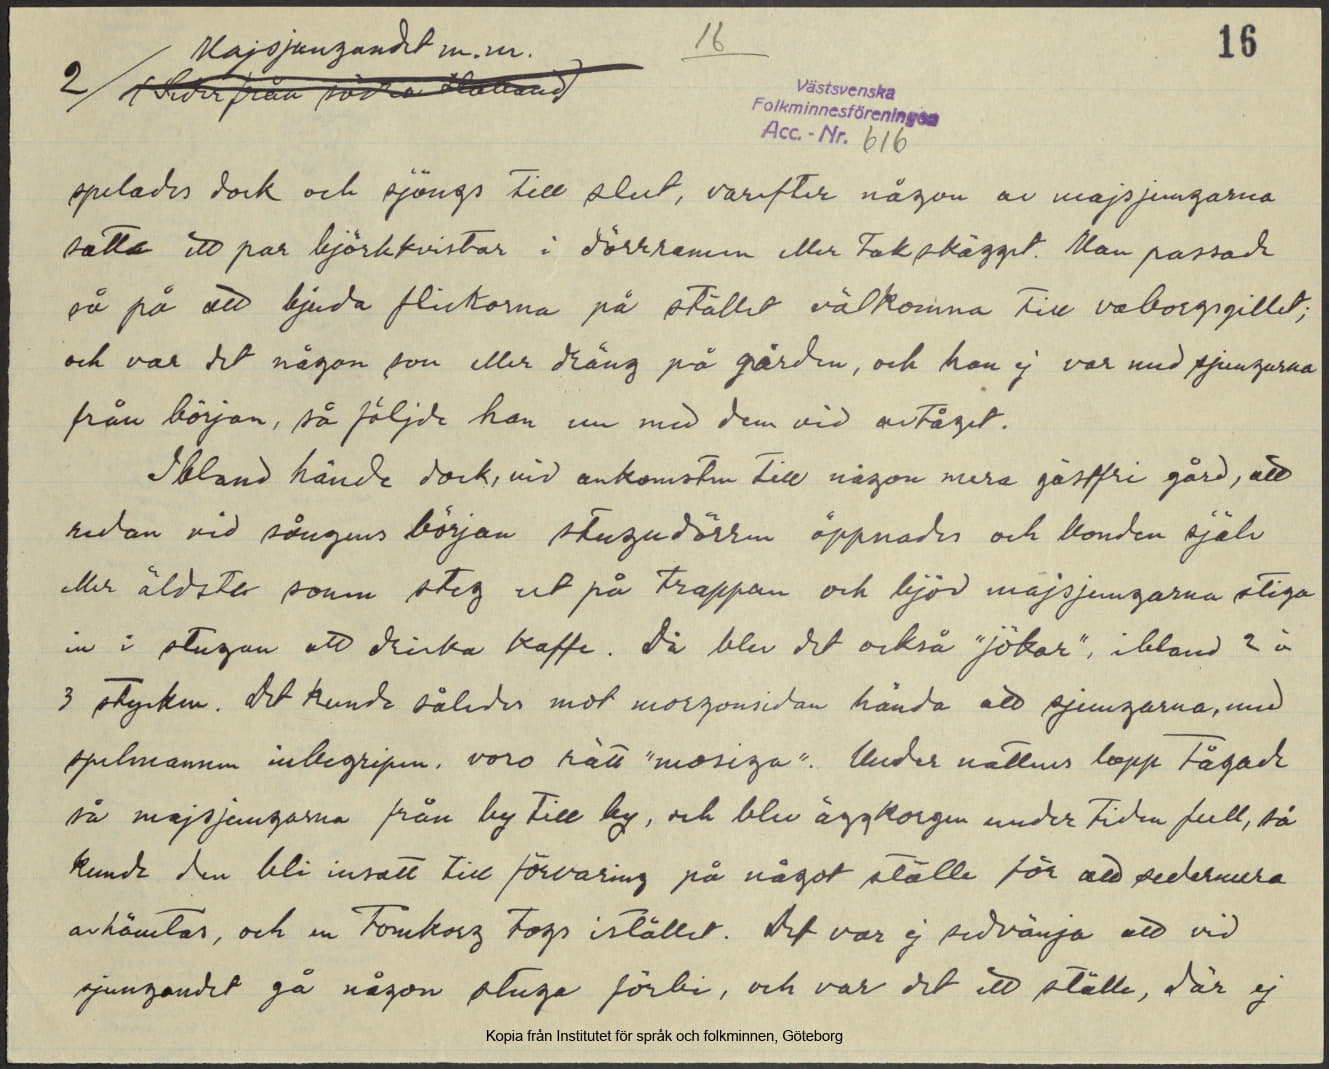 16
16
2/ Majsjungandet m.m.
(Seder från södra Halland)
Västsvenska
Folkminnesföreningen
Acc. - Nr. 616
spelades dock och sjöngs till slut, varefter någon av majsjungarna
satte ett par björkkvistar i dörrramen eller takskägget. Man passade
så på att bjuda flickorna på stället välkomna till valborgsgillet;
och var det någon son eller dräng på gården, och han ej var med sjungarna
från början, så följde han nu med dem vid avtåget.
Ibland hände dock, vid ankomsten till någon mera gästfri gård, att
redan vid sångens början stugudörren öppnades och bonden själv
eller äldste sonen steg ut på trappan och bjöd majsjungarna stiga
in i stugan att dricka kaffe. Då blev det också "jökar", ibland 2 à
3 stycken. Det kunde således mot morgonsidan hända att sjungarna, med
spelmannen inbegripen, voro rätt "mosiga". Under nattens lopp tågade
så majsjungarna från by till by, och blev äggkorgen under tiden full, så
kunde den bli insatt till förvaring på något ställe för att sedermera
avhämtas, och en tomkorg togs istället. Det var ej sedvänja att vid
sjungandet gå någon stuga förbi, och var det ett ställe, där ej
Kopia från Institutet för språk och folkminnen, Göteborg